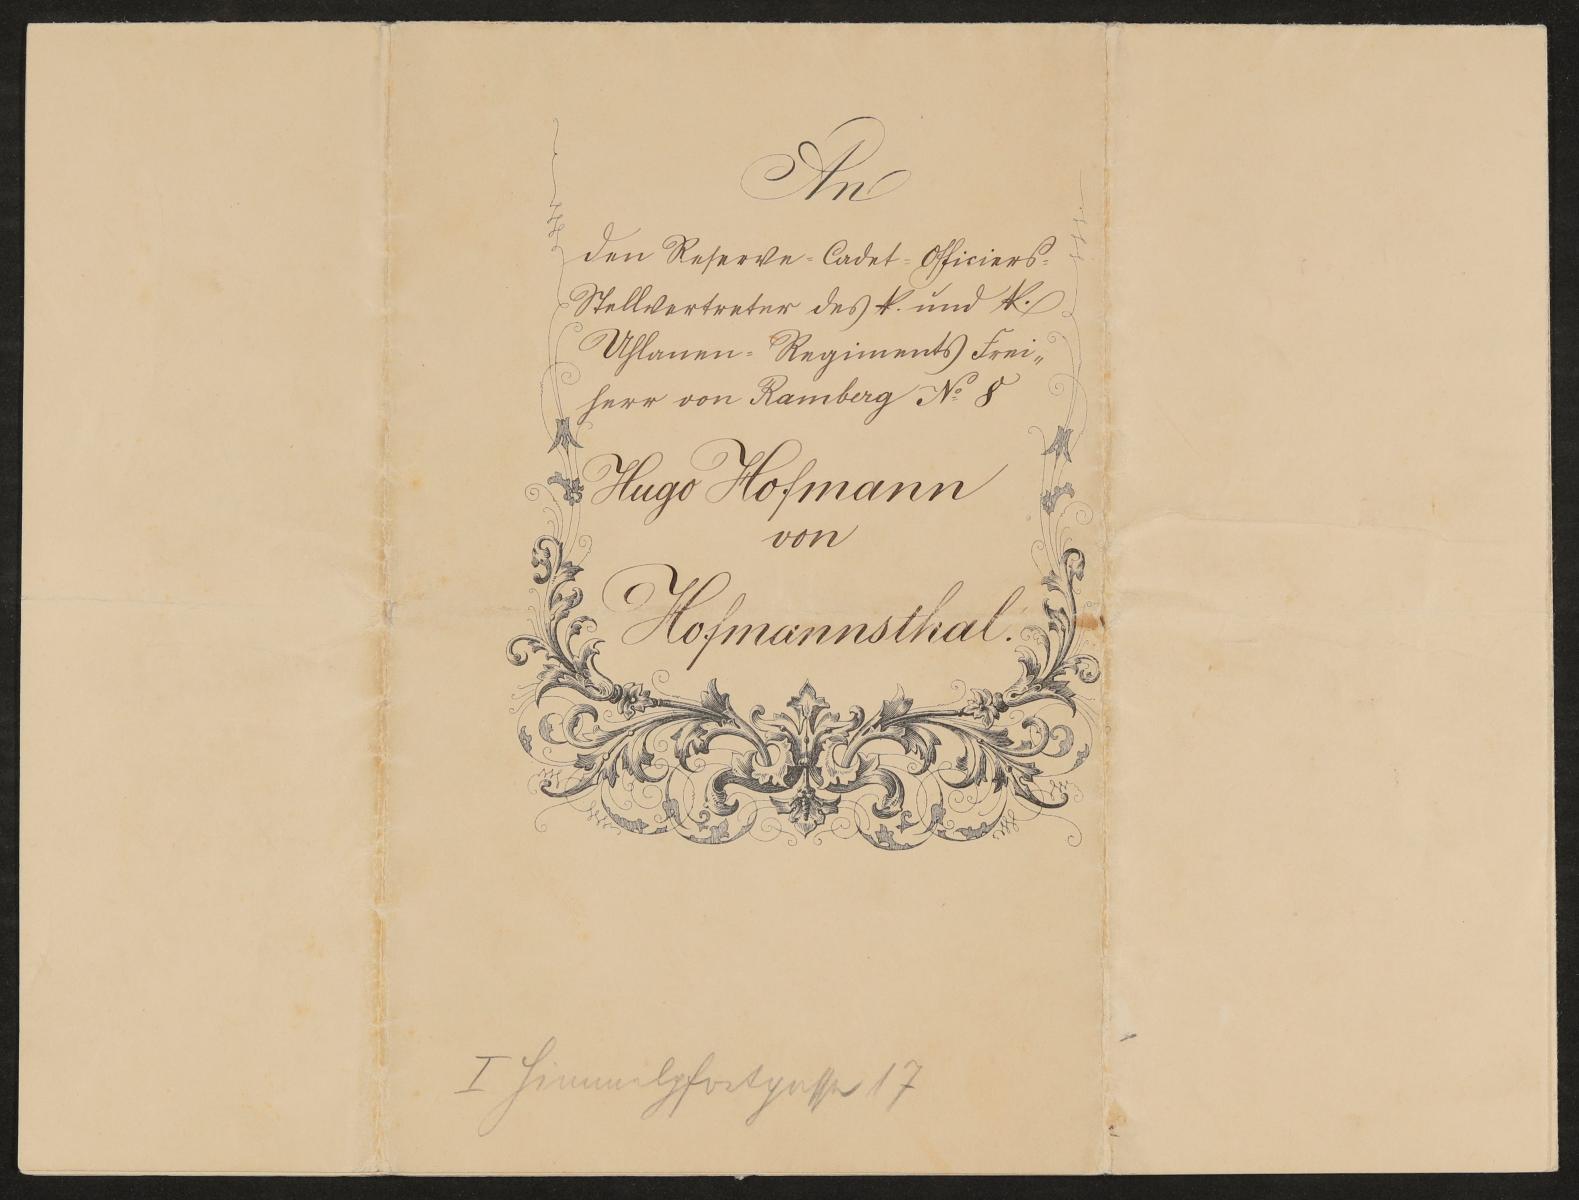 An
den Reserve-Cadet-Officiers-
Stellvertreter des k. und k.
Uhlanen-Regiments Frei„
herr von Ramberg No. 8
Hugo Hofmann
von
Hofmannsthal.
I Himmelpfortgasse 17